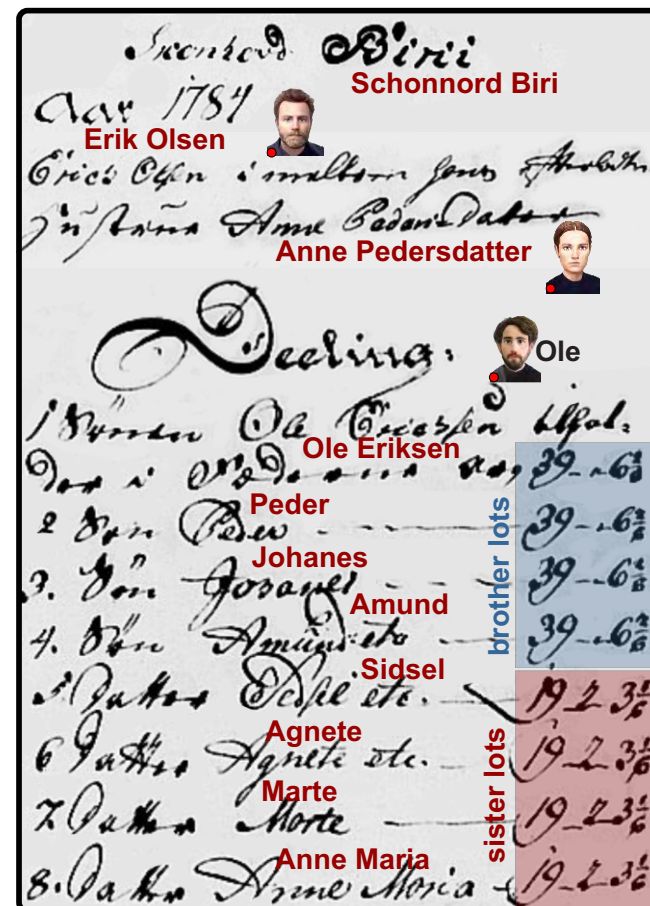 Schonnord Biri
Aar 1784
Erik Olsen
Erich Olsen i mellem hans
Hustrue Anne Pedersdatter
Anne Pedersdatter
Deeling.
Ole
1 Sönnen Ole Erichsen
Ole Eriksen
39 - " 6 2/6
Peder
2 Søn Peder - 39 - " 6 2/6
Johanes
3. Sön Johanes - 39 - " 6 2/6
Amund
4. Sön Amund etc - 39 - " 6 2/6
brother lots
Sidsel
5 Datter Sidsel etc. - 19 - 2 3 1/6
Agnete
6 Datter Agnete etc. - 19 - 2 3 1/6
Marte
7. Datter Morte - 19 - 2 3 1/6
Anne Maria
8. Datter Anne Maria - 19 - 2 3 1/6
sister lots